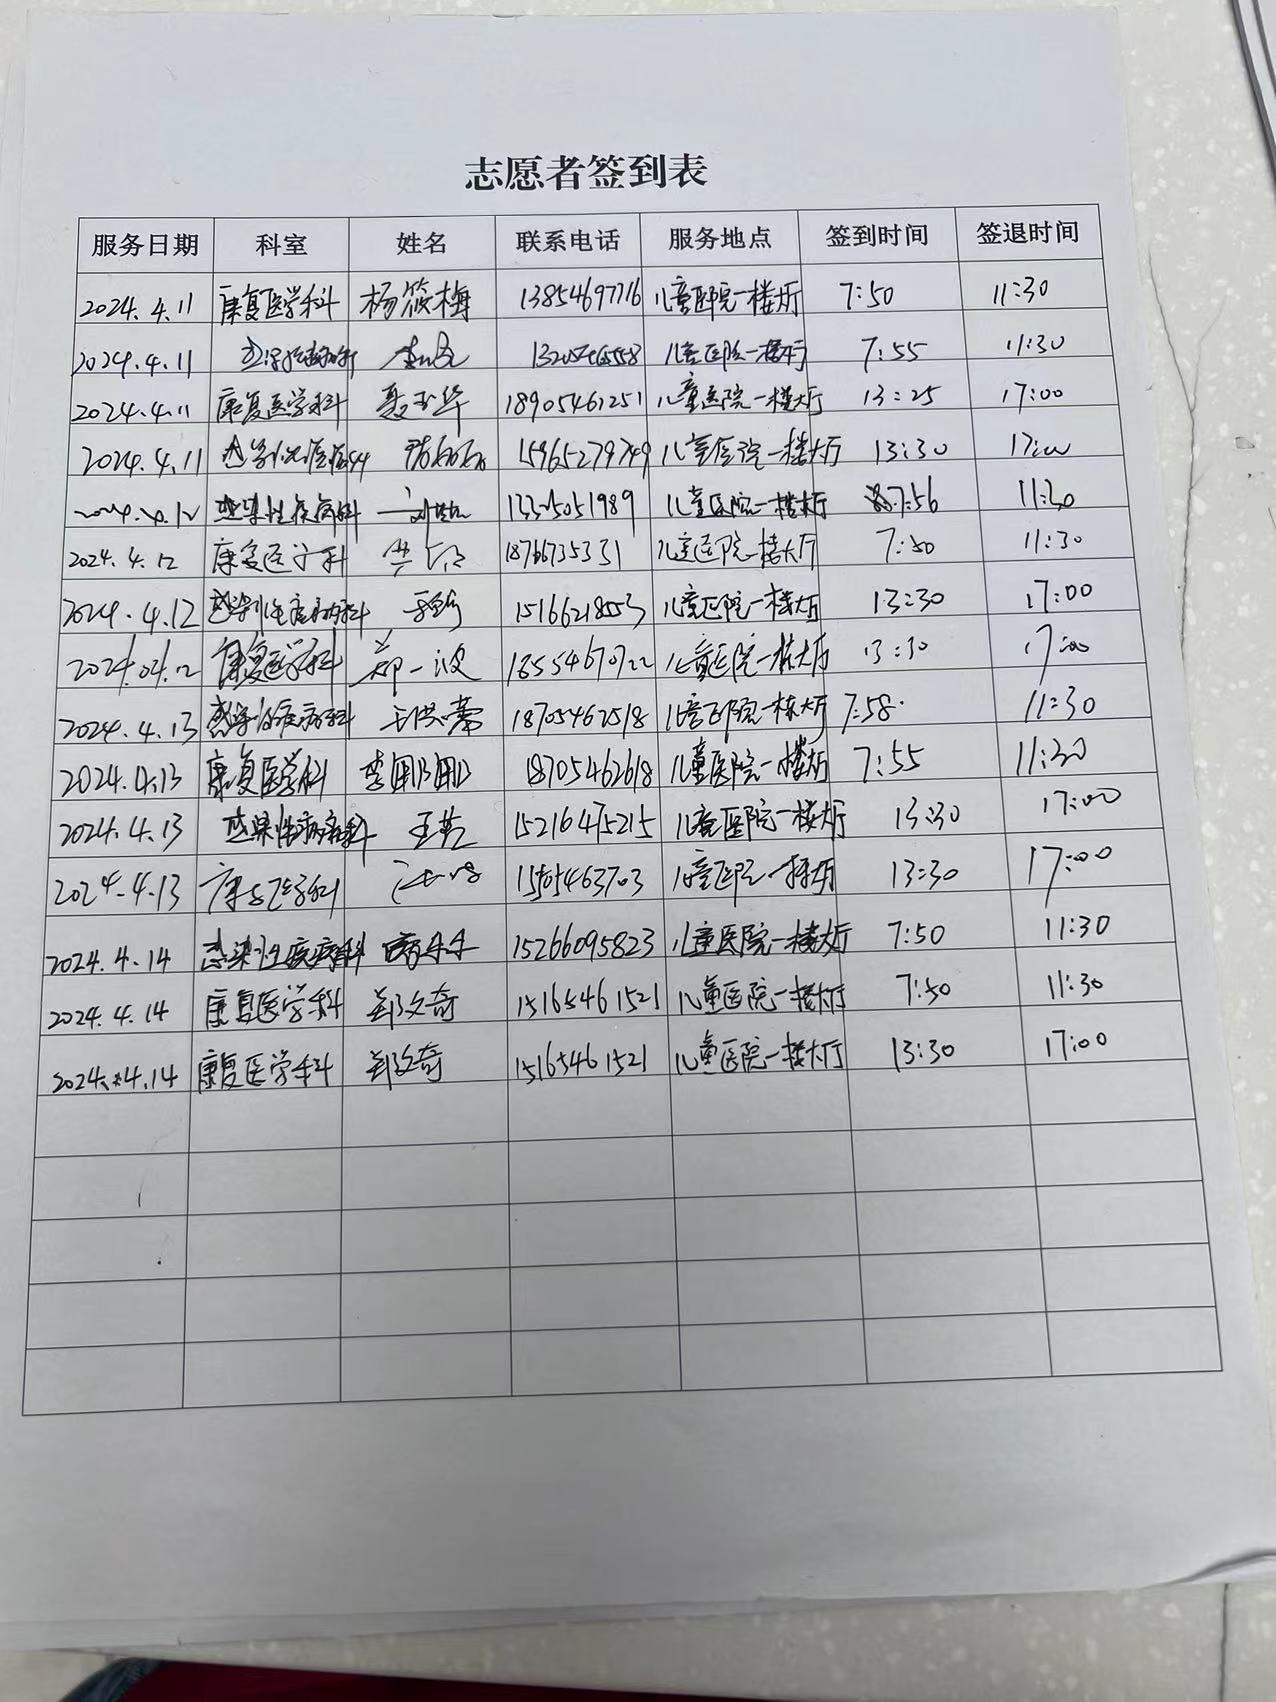 志愿者签到表
服务日期 科室 姓名 联系电话 服务地点 签到时间 签退时间
2024.4.11 康复医学科 杨筱梅 13854697716 儿童医院一楼大厅 7:50 11:30
2024.4.11 儿童医院一楼大厅 7:55 11:30
2024.4.11 康复医学科 聂玉华 18905461251 儿童医院一楼大厅 13:25 17:00
2024.4.11 15965279749 儿童医院一楼大厅 13:30 17:00
2024.4.12 感染性疾病科 13325051989 儿童医院一楼大厅 7:56 11:30
2024.4.12 康复医学科 儿童医院一楼大厅 7:50 11:30
2024.4.12 感染性疾病科 15166218553 儿童医院一楼大厅 13:30 17:00
2024.04.12 康复医学科 郑一波 18554670722 儿童医院一楼大厅 13:30 17:00
2024.4.13 感染性疾病科 18705462518 儿童医院一楼大厅 7:58 11:30
2024.4.13 康复医学科 李明明 18705462618 儿童医院一楼大厅 7:55 11:30
2024.4.13 感染性疾病科 15216475215 儿童医院一楼大厅 13:30 17:00
2024.4.13 康复医学科 15505463703 儿童医院一楼大厅 13:30 17:00
2024.4.14 感染性疾病科 15266095823 儿童医院一楼大厅 7:50 11:30
2024.4.14 康复医学科 郑文奇 15165461521 儿童医院一楼大厅 7:50 11:30
2024.4.14 康复医学科 郑文奇 15165461521 儿童医院一楼大厅 13:30 17:00